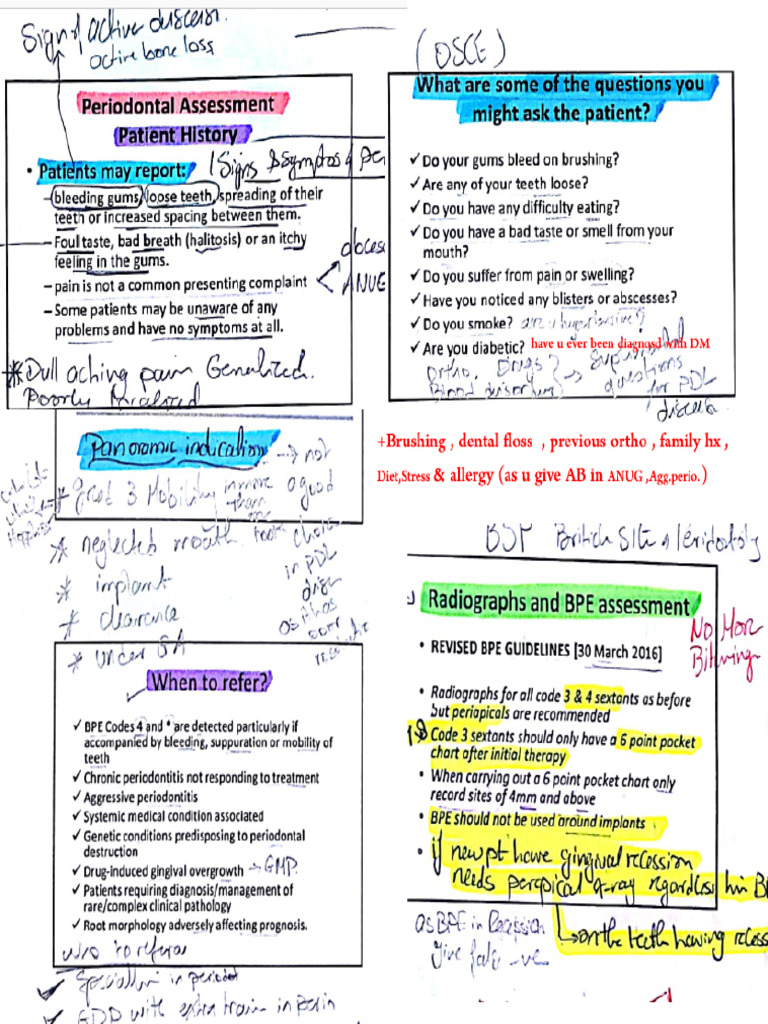 Sign of active disease.
active bone loss
Periodontal Assessment
Patient History
• Patients may report:
Signs & Symptoms of
– bleeding gums, loose teeth, spreading of their
teeth or increased spacing between them.
– Foul taste, bad breath (halitosis) or an itchy
feeling in the gums.
– pain is not a common presenting complaint
ANUG
– Some patients may be unaware of any
problems and have no symptoms at all.
* Dull aching pain Generalized.
Poorly localized
(OSCE)
What are some of the questions you
might ask the patient?
✓ Do your gums bleed on brushing?
✓ Are any of your teeth loose?
✓ Do you have any difficulty eating?
✓ Do you have a bad taste or smell from your
mouth?
✓ Do you suffer from pain or swelling?
✓ Have you noticed any blisters or abscesses?
✓ Do you smoke? are u hypertensive?
✓ Are you diabetic? have u ever been diagnosd with DM
Ortho, Drugs?
questions
for PDL
+Brushing , dental floss , previous ortho , family hx ,
Diet,Stress & allergy (as u give AB in ANUG ,Agg.perio.)
Panoramic indication → not
a good
* grad 3 Mobility in more than
* neglected mouth
in PDL
* implant
* clearance
* under GA
When to refer?
✓ BPE Codes 4 and * are detected particularly if
accompanied by bleeding, suppuration or mobility of
teeth
✓ Chronic periodontitis not responding to treatment
✓ Aggressive periodontitis
✓ Systemic medical condition associated
✓ Genetic conditions predisposing to periodontal
destruction
✓ Drug-induced gingival overgrowth → GMP.
✓ Patients requiring diagnosis/management of
rare/complex clinical pathology
✓ Root morphology adversely affecting prognosis.
who to refer
✓ Specialist in period
✓ GDP with extra train in perio
BSP British
Radiographs and BPE assessment
No More
Bitwing
• REVISED BPE GUIDELINES [30 March 2016]
• Radiographs for all code 3 & 4 sextants as before
but periapicals are recommended
• Code 3 sextants should only have a 6 point pocket
chart after initial therapy
• When carrying out a 6 point pocket chart only
record sites of 4mm and above
• BPE should not be used around implants
• if new pt have gingival recession
needs perapical x-ray regardless
→ on the teeth having recess
as BPE in Recession
give false -ve